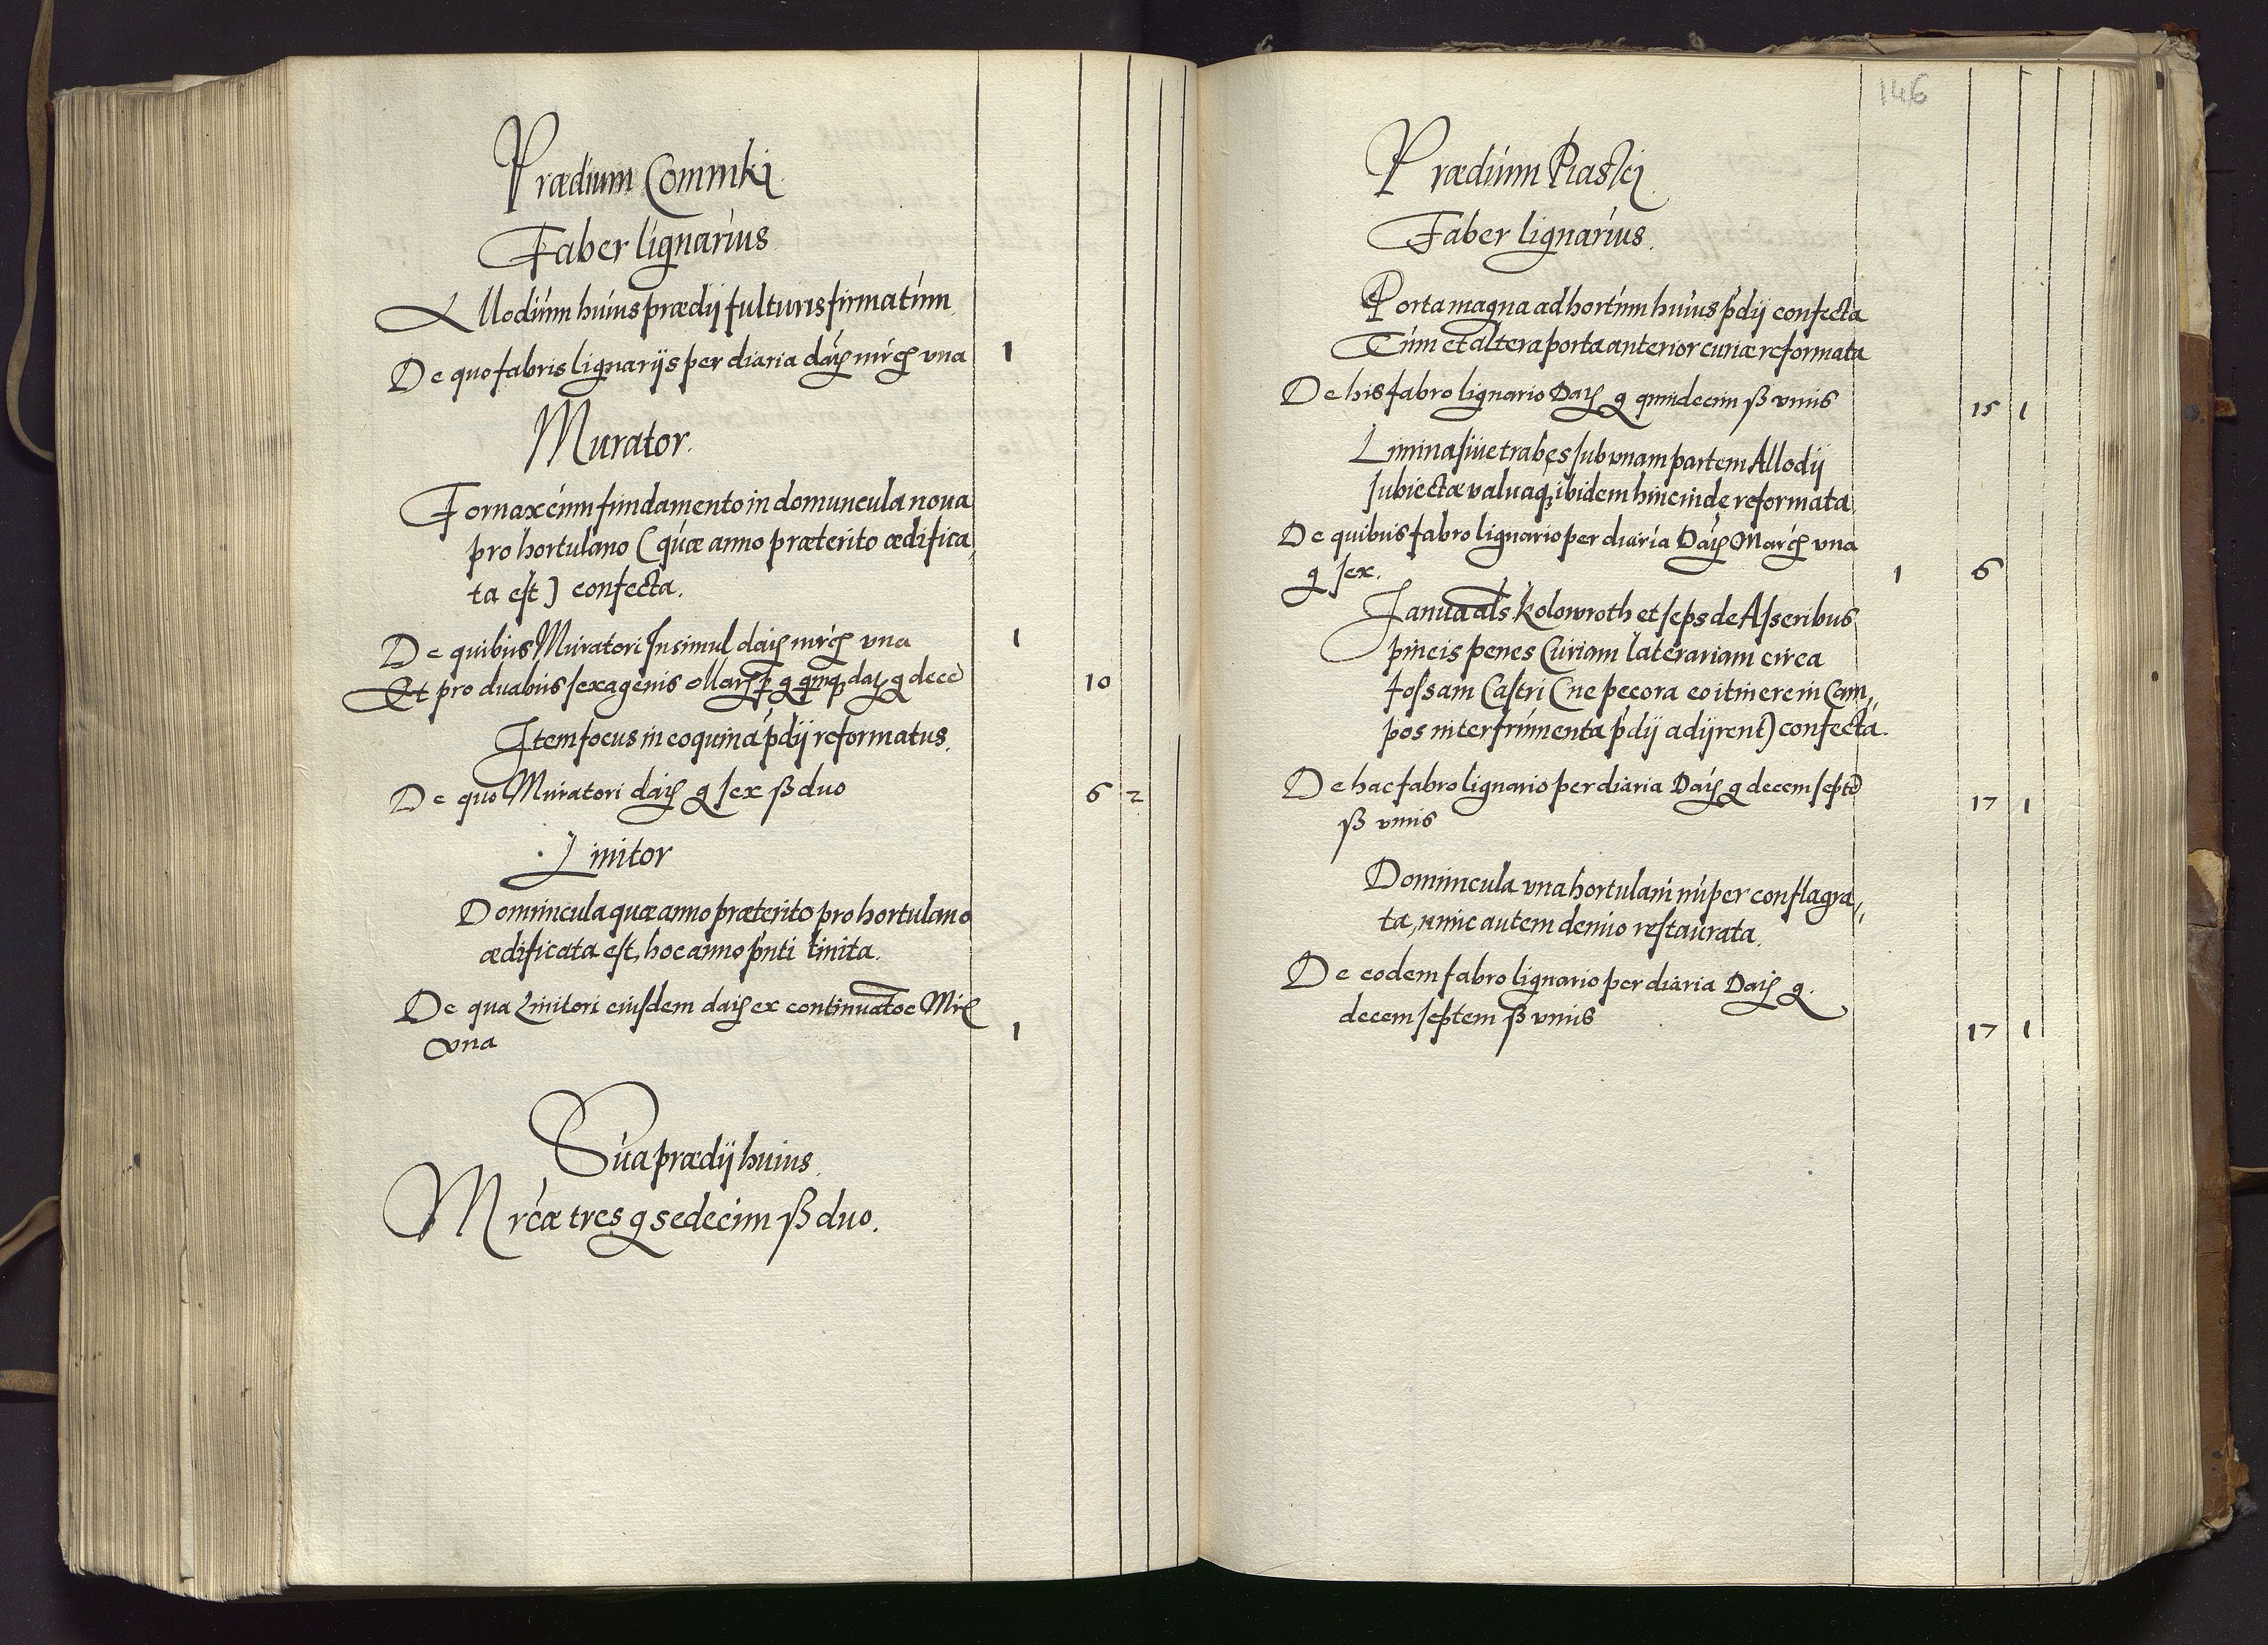 Prædium Commki
Faber lignarius
Allodium huius prædij fulturis firmatum.
De quo fabris lignarijs per diaria daŋ mrcŋ vna 1
Murator.
Fornax cum fundamento in domuncula noua
pro hortulano (quæ anno præterito ædifica,
ta est) confecta.
De quibus Muratori Insimul daŋ mrcŋ vna 1
Et pro duabus sexagenis ollarŋ p g qnnq daŋ g dece 10
Item focus in coquina pdij reformatus.
De quo Muratori daŋ g sex ß duo 6 2
Linitor
Domuncula quæ anno præterito pro hortulano
ædificata est, hoc anno pnti linita.
De qua Linitori eiusdem daŋ ex continuatoe Mrc
vna 1
Sua prædij huius.
Mrcæ tres g sedecim ß duo.
146
Prædium Piasky
Faber lignarius.
Porta magna ad hortum huius pdij confecta
Tum et altera porta anterior curiæ reformata
De his fabro lignario Daŋ g quindecim ß vnus 15 1
Limina siue trabes sub vnam partem Allodij
subiectæ valuaq, ibidem hincinde reformata.
De quibus fabro lignario per diaria Daŋ Marcŋ vna
g sex. 1 6
Janua als Kolowroth et seps de Asseribus
pineis penes Curiam laterariam circa
fossam Castri (ne pecora eo itinere in Cam,
pos inter frumenta pdij adijrent) confecta.
De hac fabro lignario per diaria Daŋ g decem septe
ß vnus 17 1
Domuncula vna hortulani nuper conflagra,,
ta, nunc autem denuo restaurata.
De eodem fabro lignario per diaria Daŋ g.
decem septem ß vnus 17 1